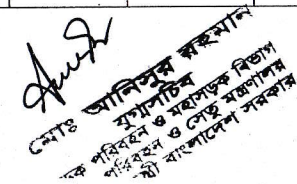 মোঃ আনিসুর রহমান
যুগ্মসচিব
সড়ক পরিবহন ও মহাসড়ক বিভাগ
পরিবহন ও সেতু মন্ত্রণালয়
বাংলাদেশ সরকার